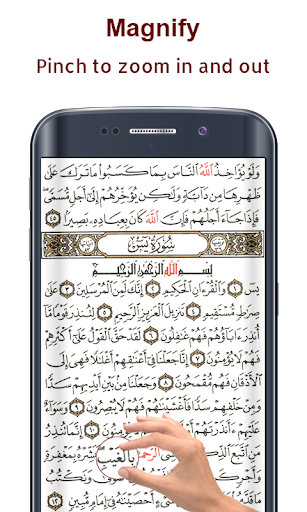 Magnify
Pinch to zoom in and out
وَلَوْ يُؤَاخِذُ ٱللَّهُ ٱلنَّاسَ بِمَا كَسَبُوا۟ مَا تَرَكَ عَلَىٰ
ظَهْرِهَا مِن دَآبَّةٍ وَلَٰكِن يُؤَخِّرُهُمْ إِلَىٰٓ أَجَلٍ مُّسَمًّى
فَإِذَا جَآءَ أَجَلُهُمْ فَإِنَّ ٱللَّهَ كَانَ بِعِبَادِهِۦ بَصِيرًۢا ٤٥
سُورَةُ يسٓ
بِسْمِ ٱللَّهِ ٱلرَّحْمَٰنِ ٱلرَّحِيمِ
يسٓ ١ وَٱلْقُرْءَانِ ٱلْحَكِيمِ ٢ إِنَّكَ لَمِنَ ٱلْمُرْسَلِينَ ٣ عَلَىٰ
صِرَٰطٍ مُّسْتَقِيمٍ ٤ تَنزِيلَ ٱلْعَزِيزِ ٱلرَّحِيمِ ٥ لِتُنذِرَ قَوْمًا مَّآ
أُنذِرَ ءَابَآؤُهُمْ فَهُمْ غَٰفِلُونَ ٦ لَقَدْ حَقَّ ٱلْقَوْلُ عَلَىٰٓ أَكْثَرِهِمْ
فَهُمْ لَا يُؤْمِنُونَ ٧ إِنَّا جَعَلْنَا فِىٓ أَعْنَٰقِهِمْ أَغْلَٰلًا فَهِىَ إِلَى
ٱلْأَذْقَانِ فَهُم مُّقْمَحُونَ ٨ وَجَعَلْنَا مِنۢ بَيْنِ أَيْدِيهِمْ سَدًّا
وَمِنْ خَلْفِهِمْ سَدًّا فَأَغْشَيْنَٰهُمْ فَهُمْ لَا يُبْصِرُونَ ٩ وَسَوَآءٌ
عَلَيْهِمْ ءَأَنذَرْتَهُمْ أَمْ لَمْ تُنذِرْهُمْ لَا يُؤْمِنُونَ ١٠ إِنَّمَا تُنذِرُ
مَنِ ٱتَّبَعَ ٱلذِّكْرَ بِٱلْغَيْبِ فَبَشِّرْهُ بِمَغْفِرَةٍ
وَأَجْرٍ ٱلْمَوْتَىٰ وَنَكْتُبُ
شَىْءٍ أَحْصَيْنَٰهُ فِىٓ إِمَامٍ مُّبِينٍ ١٢